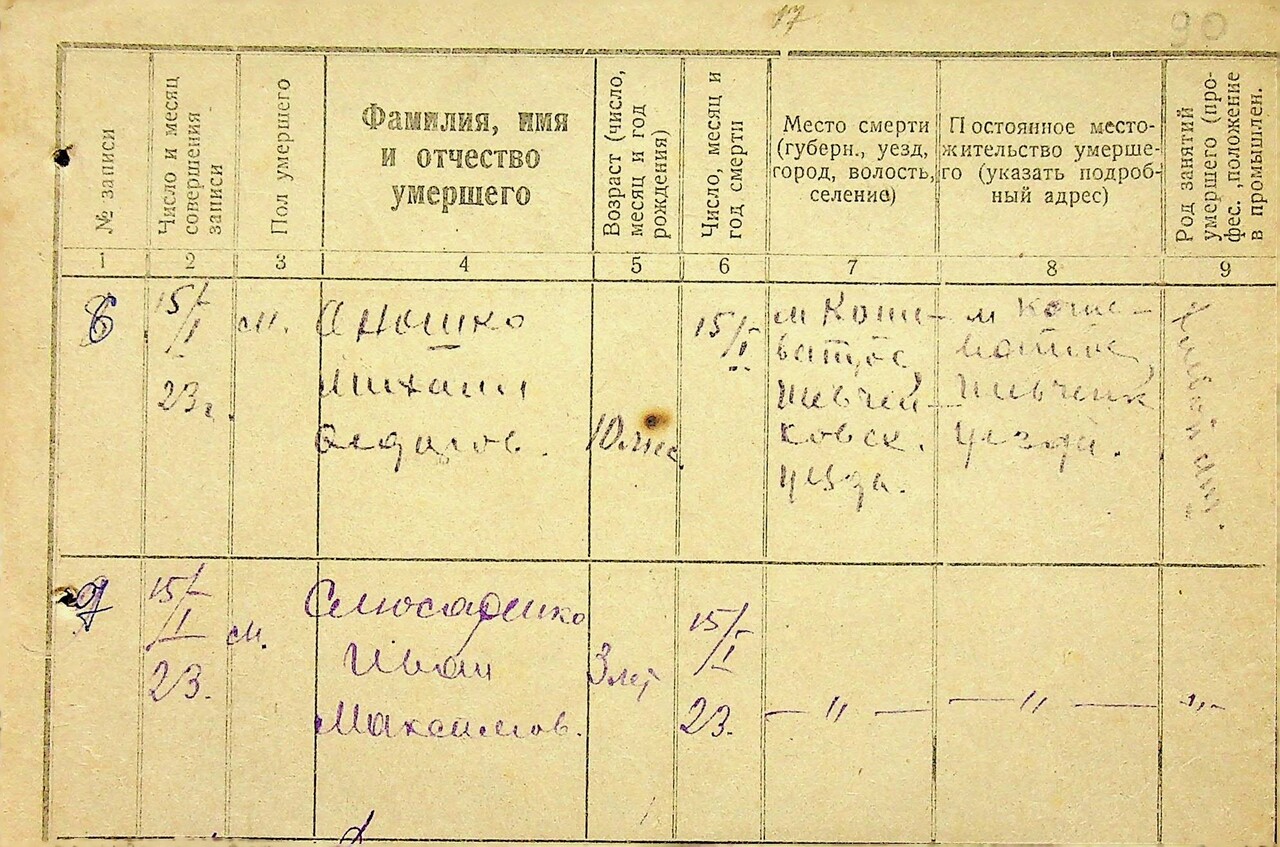 17
90
№ записи
Число и месяц
совершения
записи
Пол умершего
Фамилия, имя
и отчество
умершего
Возраст (число,
месяц и год
рождения)
Число, месяц и
год смерти
Место смерти
(губерн., уезд,
город, волость,
селение)
Постоянное место-
жительство умерше-
го (указать подроб-
ный адрес)
Род занятий
умершего (про-
фес., положение
в промышлен.
1 2 3 4 5 6 7 8 9
15/I
23г.
м.
Аношко
Михаил
Федоров.
10 мес.
15/I
м Коши-
ватое
Шевчен-
ковск.
уезда.
м Коше-
ватое
Шевченк
уезда.
9
15/I
23.
м.
Слюсаренко
Иван
Максимов.
3 лет
15/I
23.
— " —
— " —
- " -